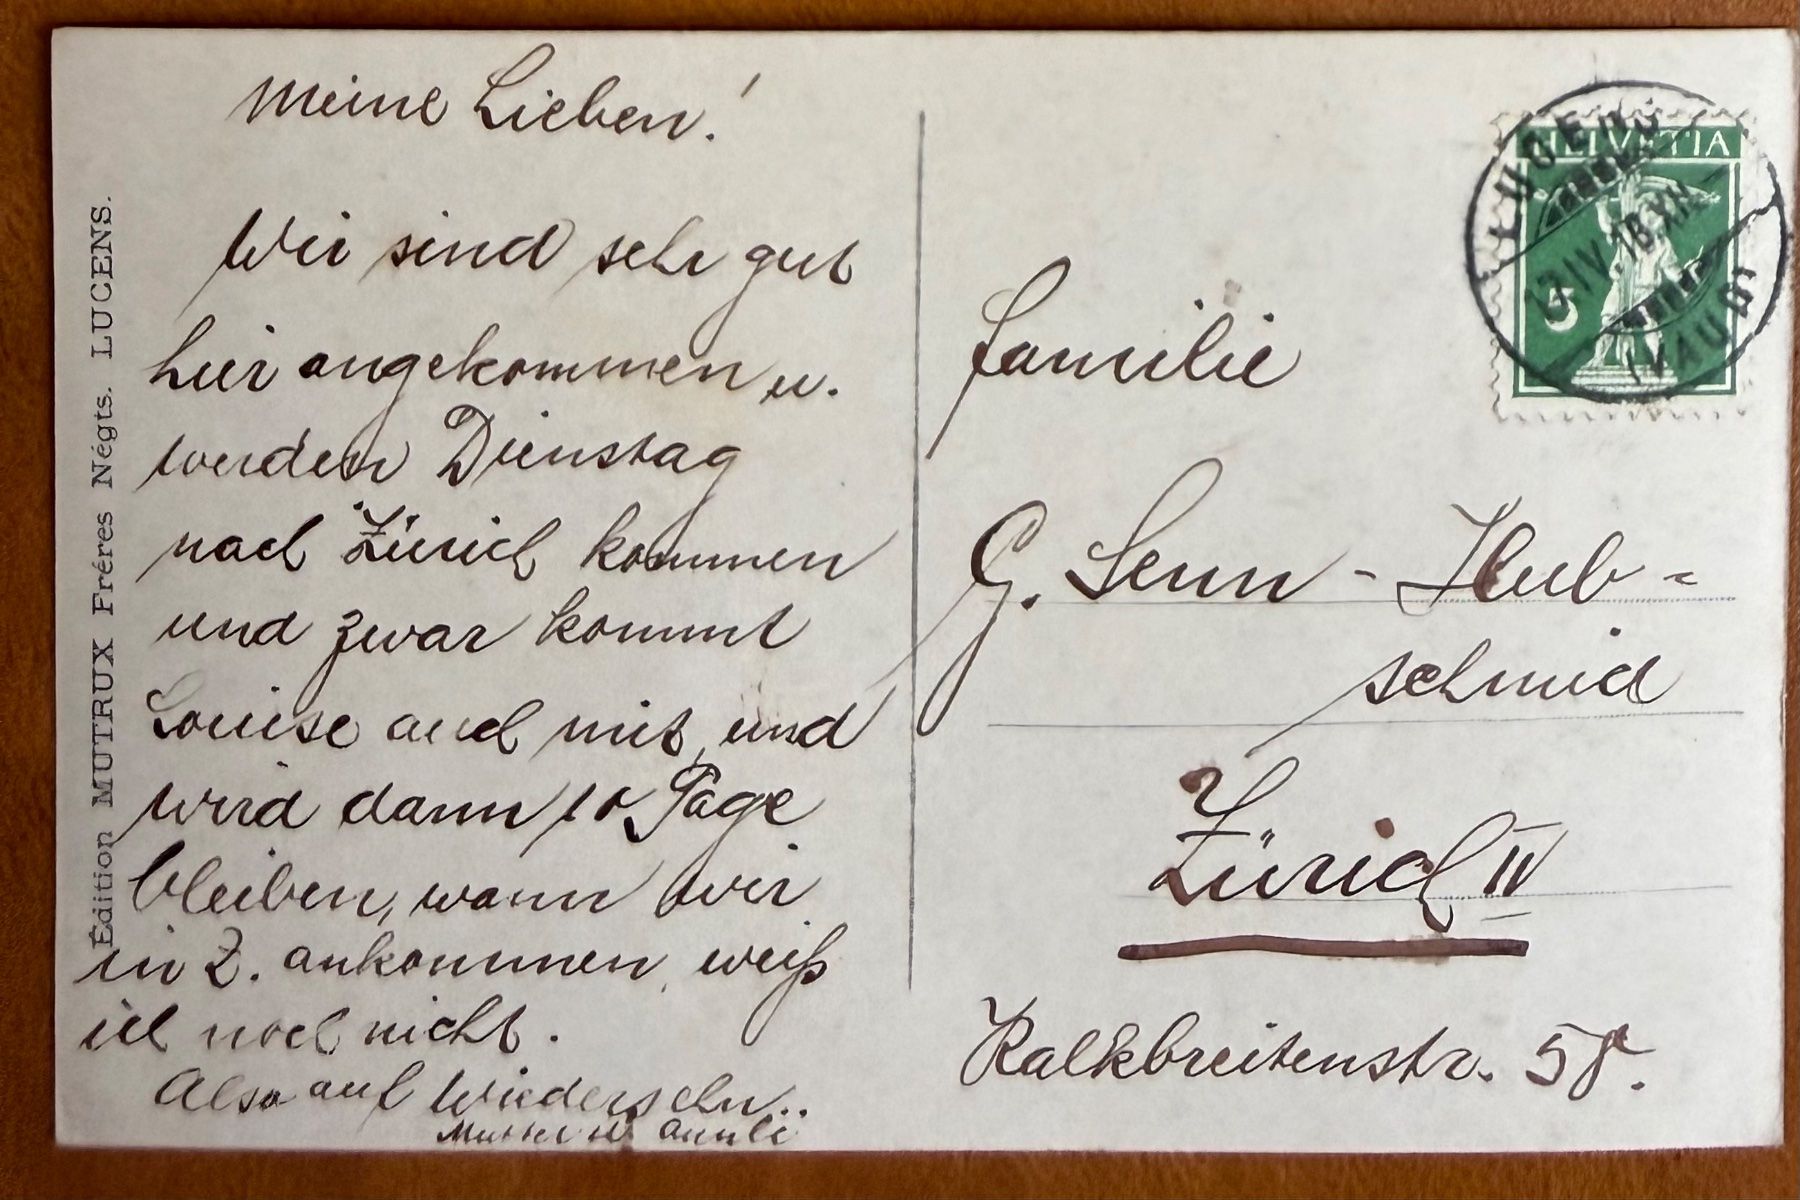 Meine Lieben!
Wir sind sehr gut
hier angekommen u.
werden Dienstag
nach Zürich kommen
und zwar kommt
Louise auch mit, und
wird dann 10 Tage
bleiben, wann wir
in Z. ankommen, weiß
ich noch nicht.
Also auf Wiedersehn..
Mutter u. Anneli
Édition MUTRUX Fréres Négts. LUCENS.
HELVETIA
5
LUCENS
IV.18.XII
(VAUD)
Familie
G. Senn - Hub =
schmid
Zürich IV
Kalkbreitenstr. 58.